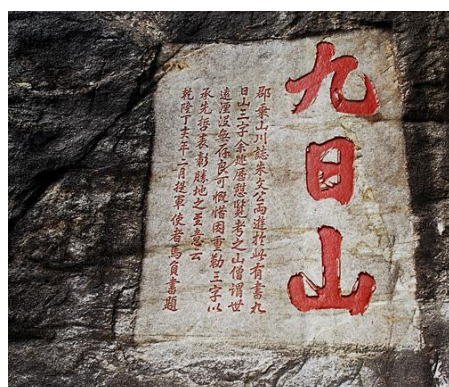 九日山
郡乘山川誌朱文公兩遊於此有書九
日山三字余遊歷憩覽考之山僧謂世
遠湮沒無存良可慨惜因重勒三字以
承先哲表彰勝地之至意云
乾隆丁亥年二月提軍使者馬負書題